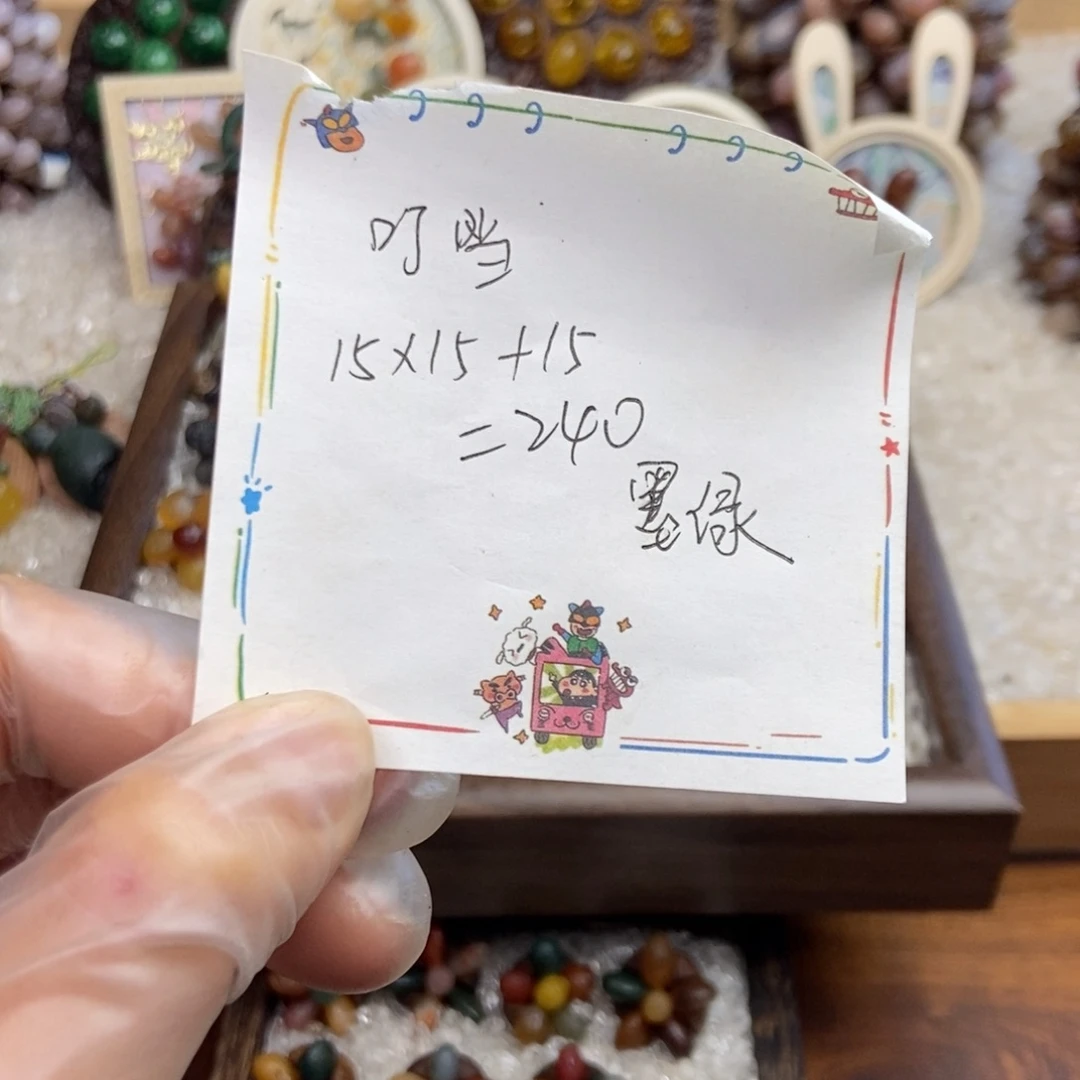 叮当
15×15+15
=240
墨绿